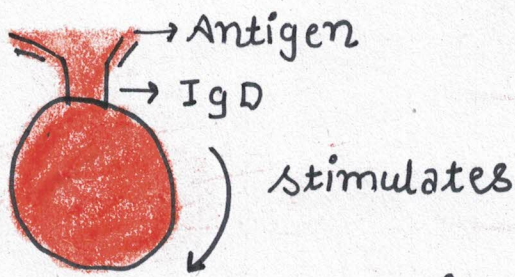 Antigen
IgD
stimulates